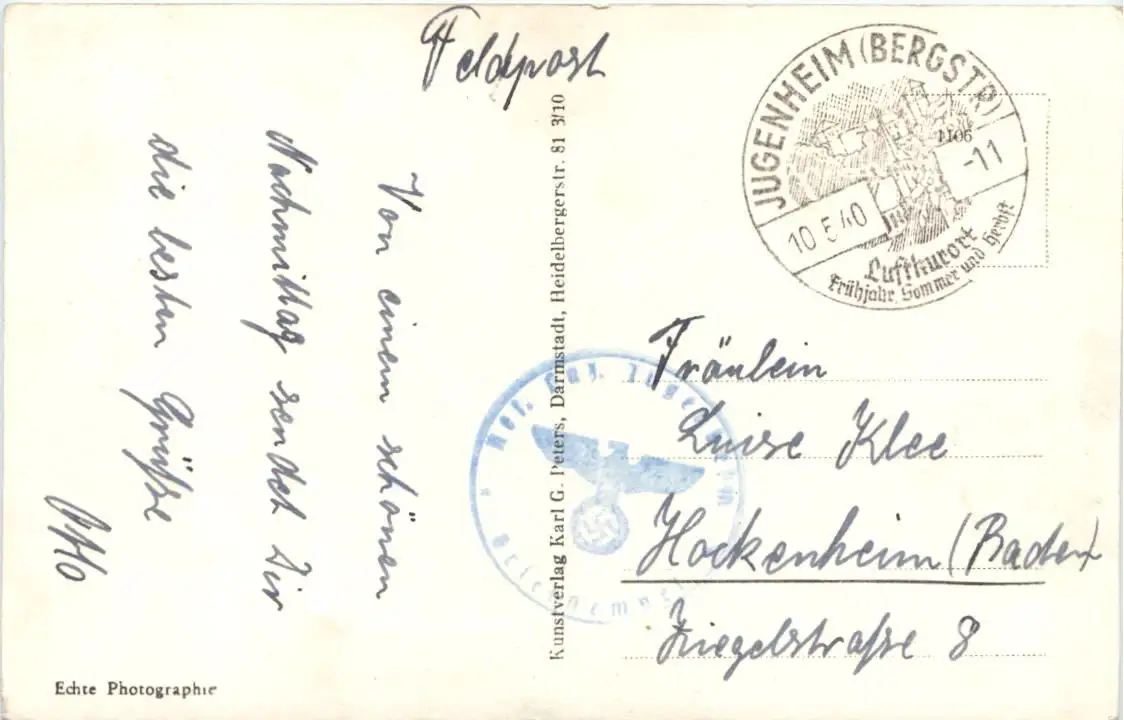 Feldpost
JUGENHEIM (BERGSTR)
1106
10.5.40
-11
Luftkurort
Frühjahr, Sommer und Herbst
Von einem schönen
Nachmittag sendet Dir
die besten Grüße
Otto
Kunstverlag Karl G. Peters, Darmstadt, Heidelbergerstr. 81 3/10
Fräulein
Luise Klee
Hockenheim (Baden)
Ziegelstraße 8
Echte Photographie